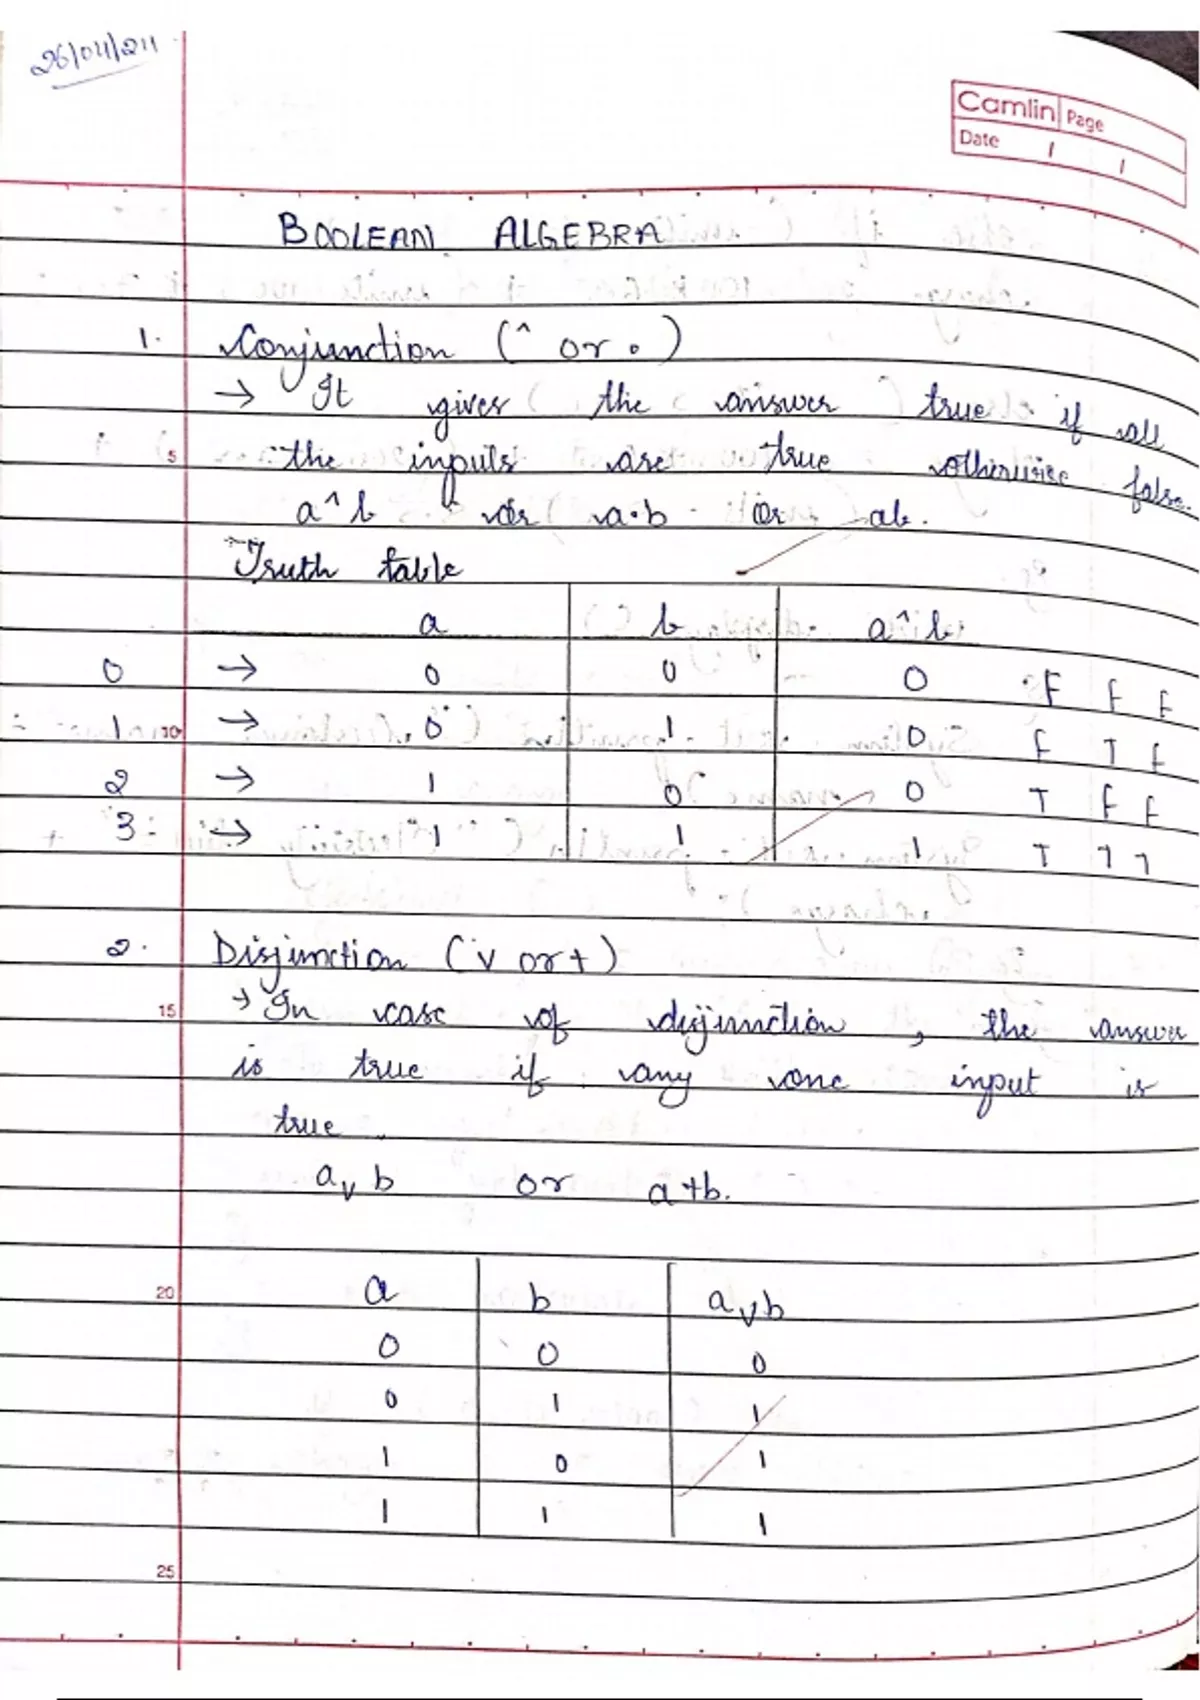 26/04/24
Camlin Page
Date / /
BOOLEAN ALGEBRA
1. Conjunction (^ or •)
→ It gives the answer true if all
5 the inputs are true otherwise false.
a^b or a•b or ab.
Truth table
a b a^b
0 → 0 0 0 F F F
1 10 → 0 1 0 F T F
2 → 1 0 0 T F F
3 → 1 1 1 T T T
2. Disjunction (v or +)
15 → In case of disjunction, the answer
is true if any one input is
true.
a v b or a+b.
20 a b a v b
0 0 0
0 1 1
1 0 1
1 1 1
25